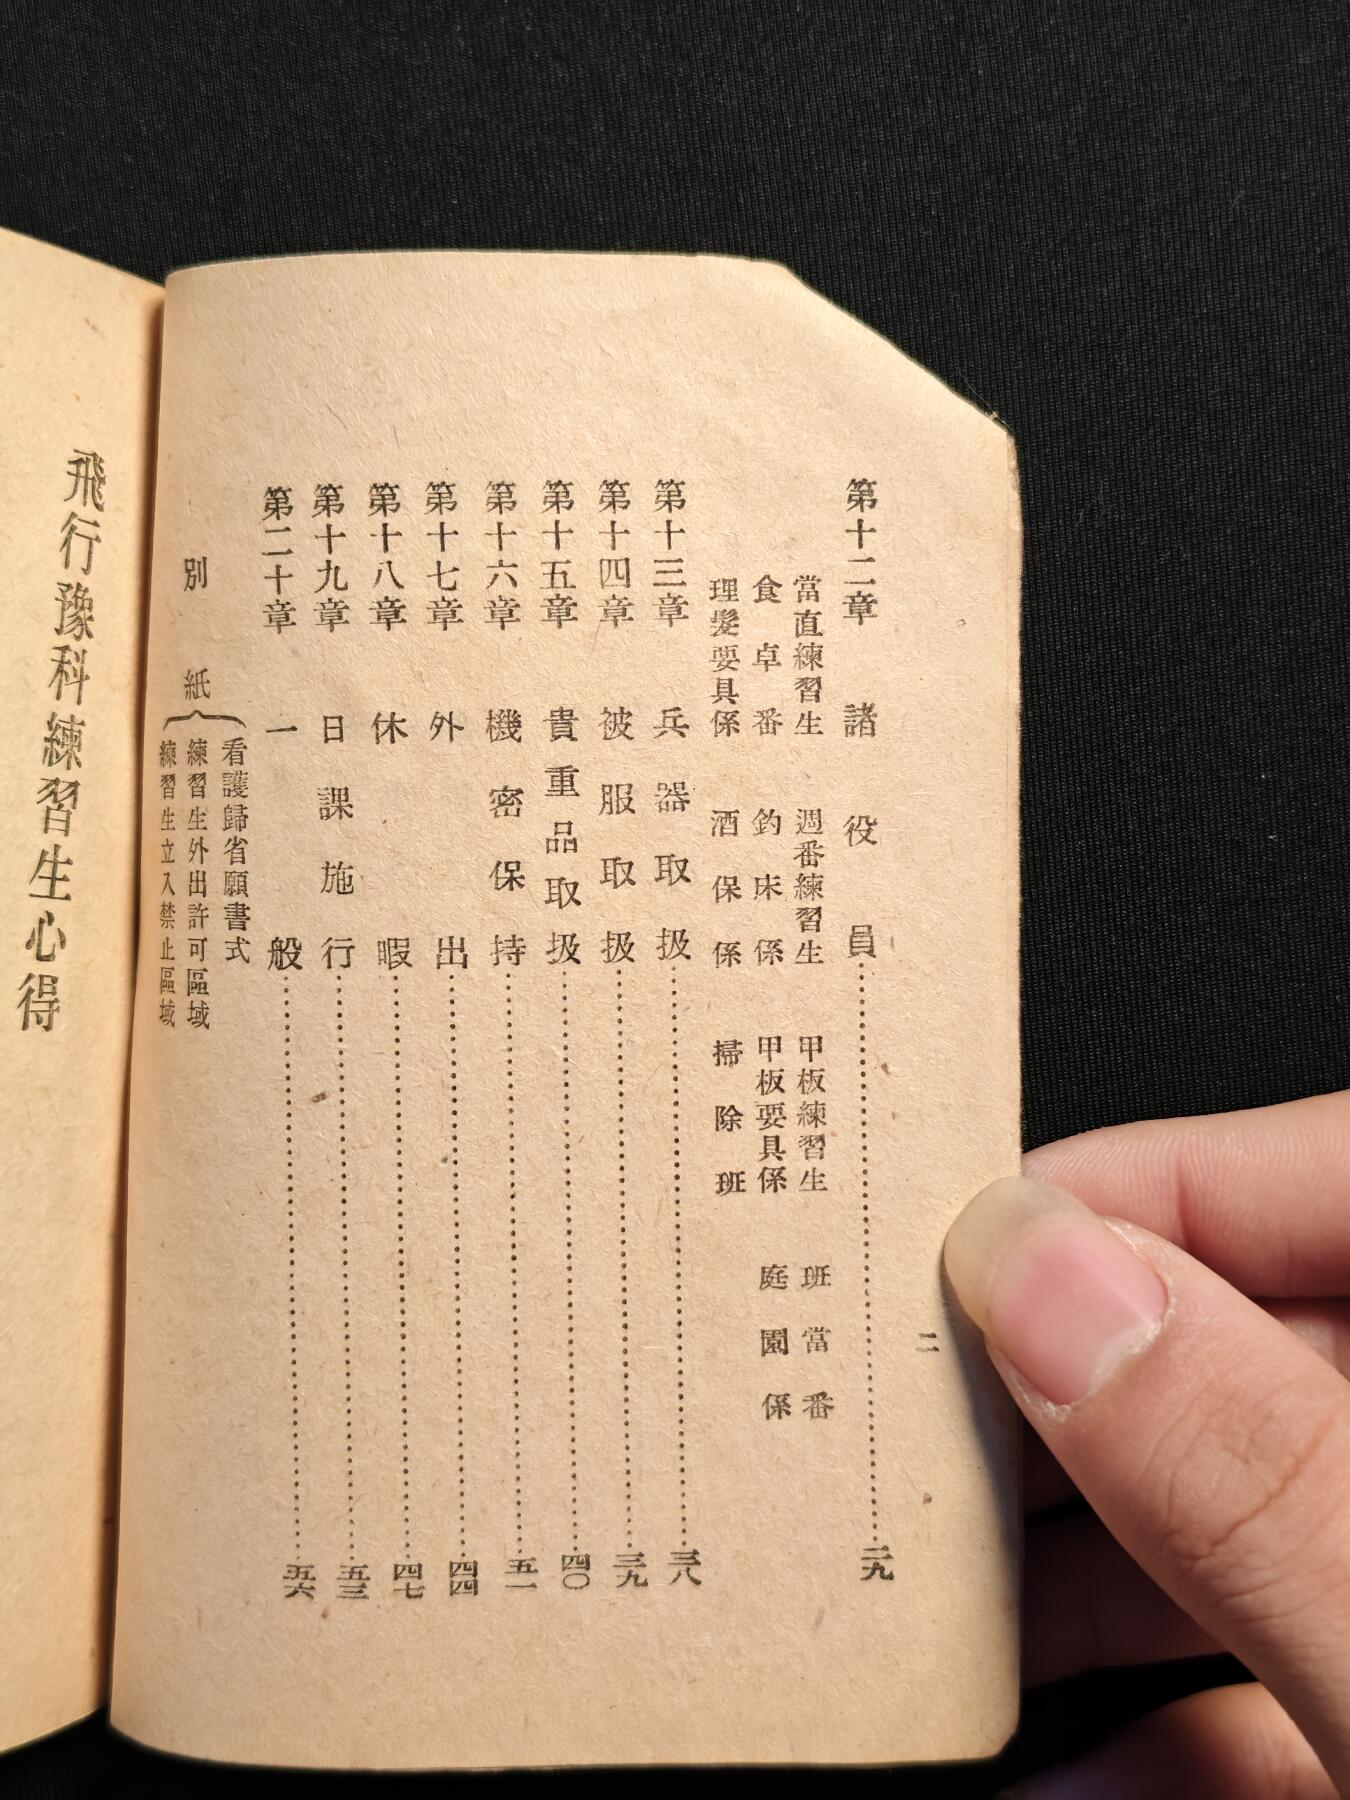 二
第十二章 諸役員 二九
當直練習生 週番練習生 甲板練習生 班當番
食卓番 釣床係 甲板要具係 庭園係
理髮要具係 酒保係 掃除班
第十三章 兵器取扱 三八
第十四章 被服取扱 三九
第十五章 貴重品取扱 四〇
第十六章 機密保持 五一
第十七章 外出 四四
第十八章 休暇 四七
第十九章 日課施行 五三
第二十章 一般 五六
別紙
看護歸省願書式
練習生外出許可區域
練習生立入禁止區域
飛行豫科練習生心得